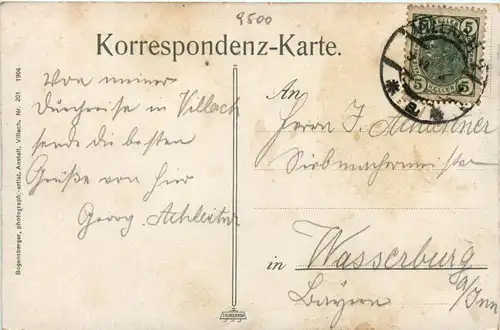 9500
Korrespondenz-Karte.
Von meiner
Durchreise in Villach
sende die besten
Grüße von hier
Georg Achleitner
An
Herrn J.
Siebmachermeister
in Wasserburg
a/Inn
Bayern
5 5
HELLER
Bogensberger, photograph.-artist. Anstalt, Villach. Nr. 201 1906